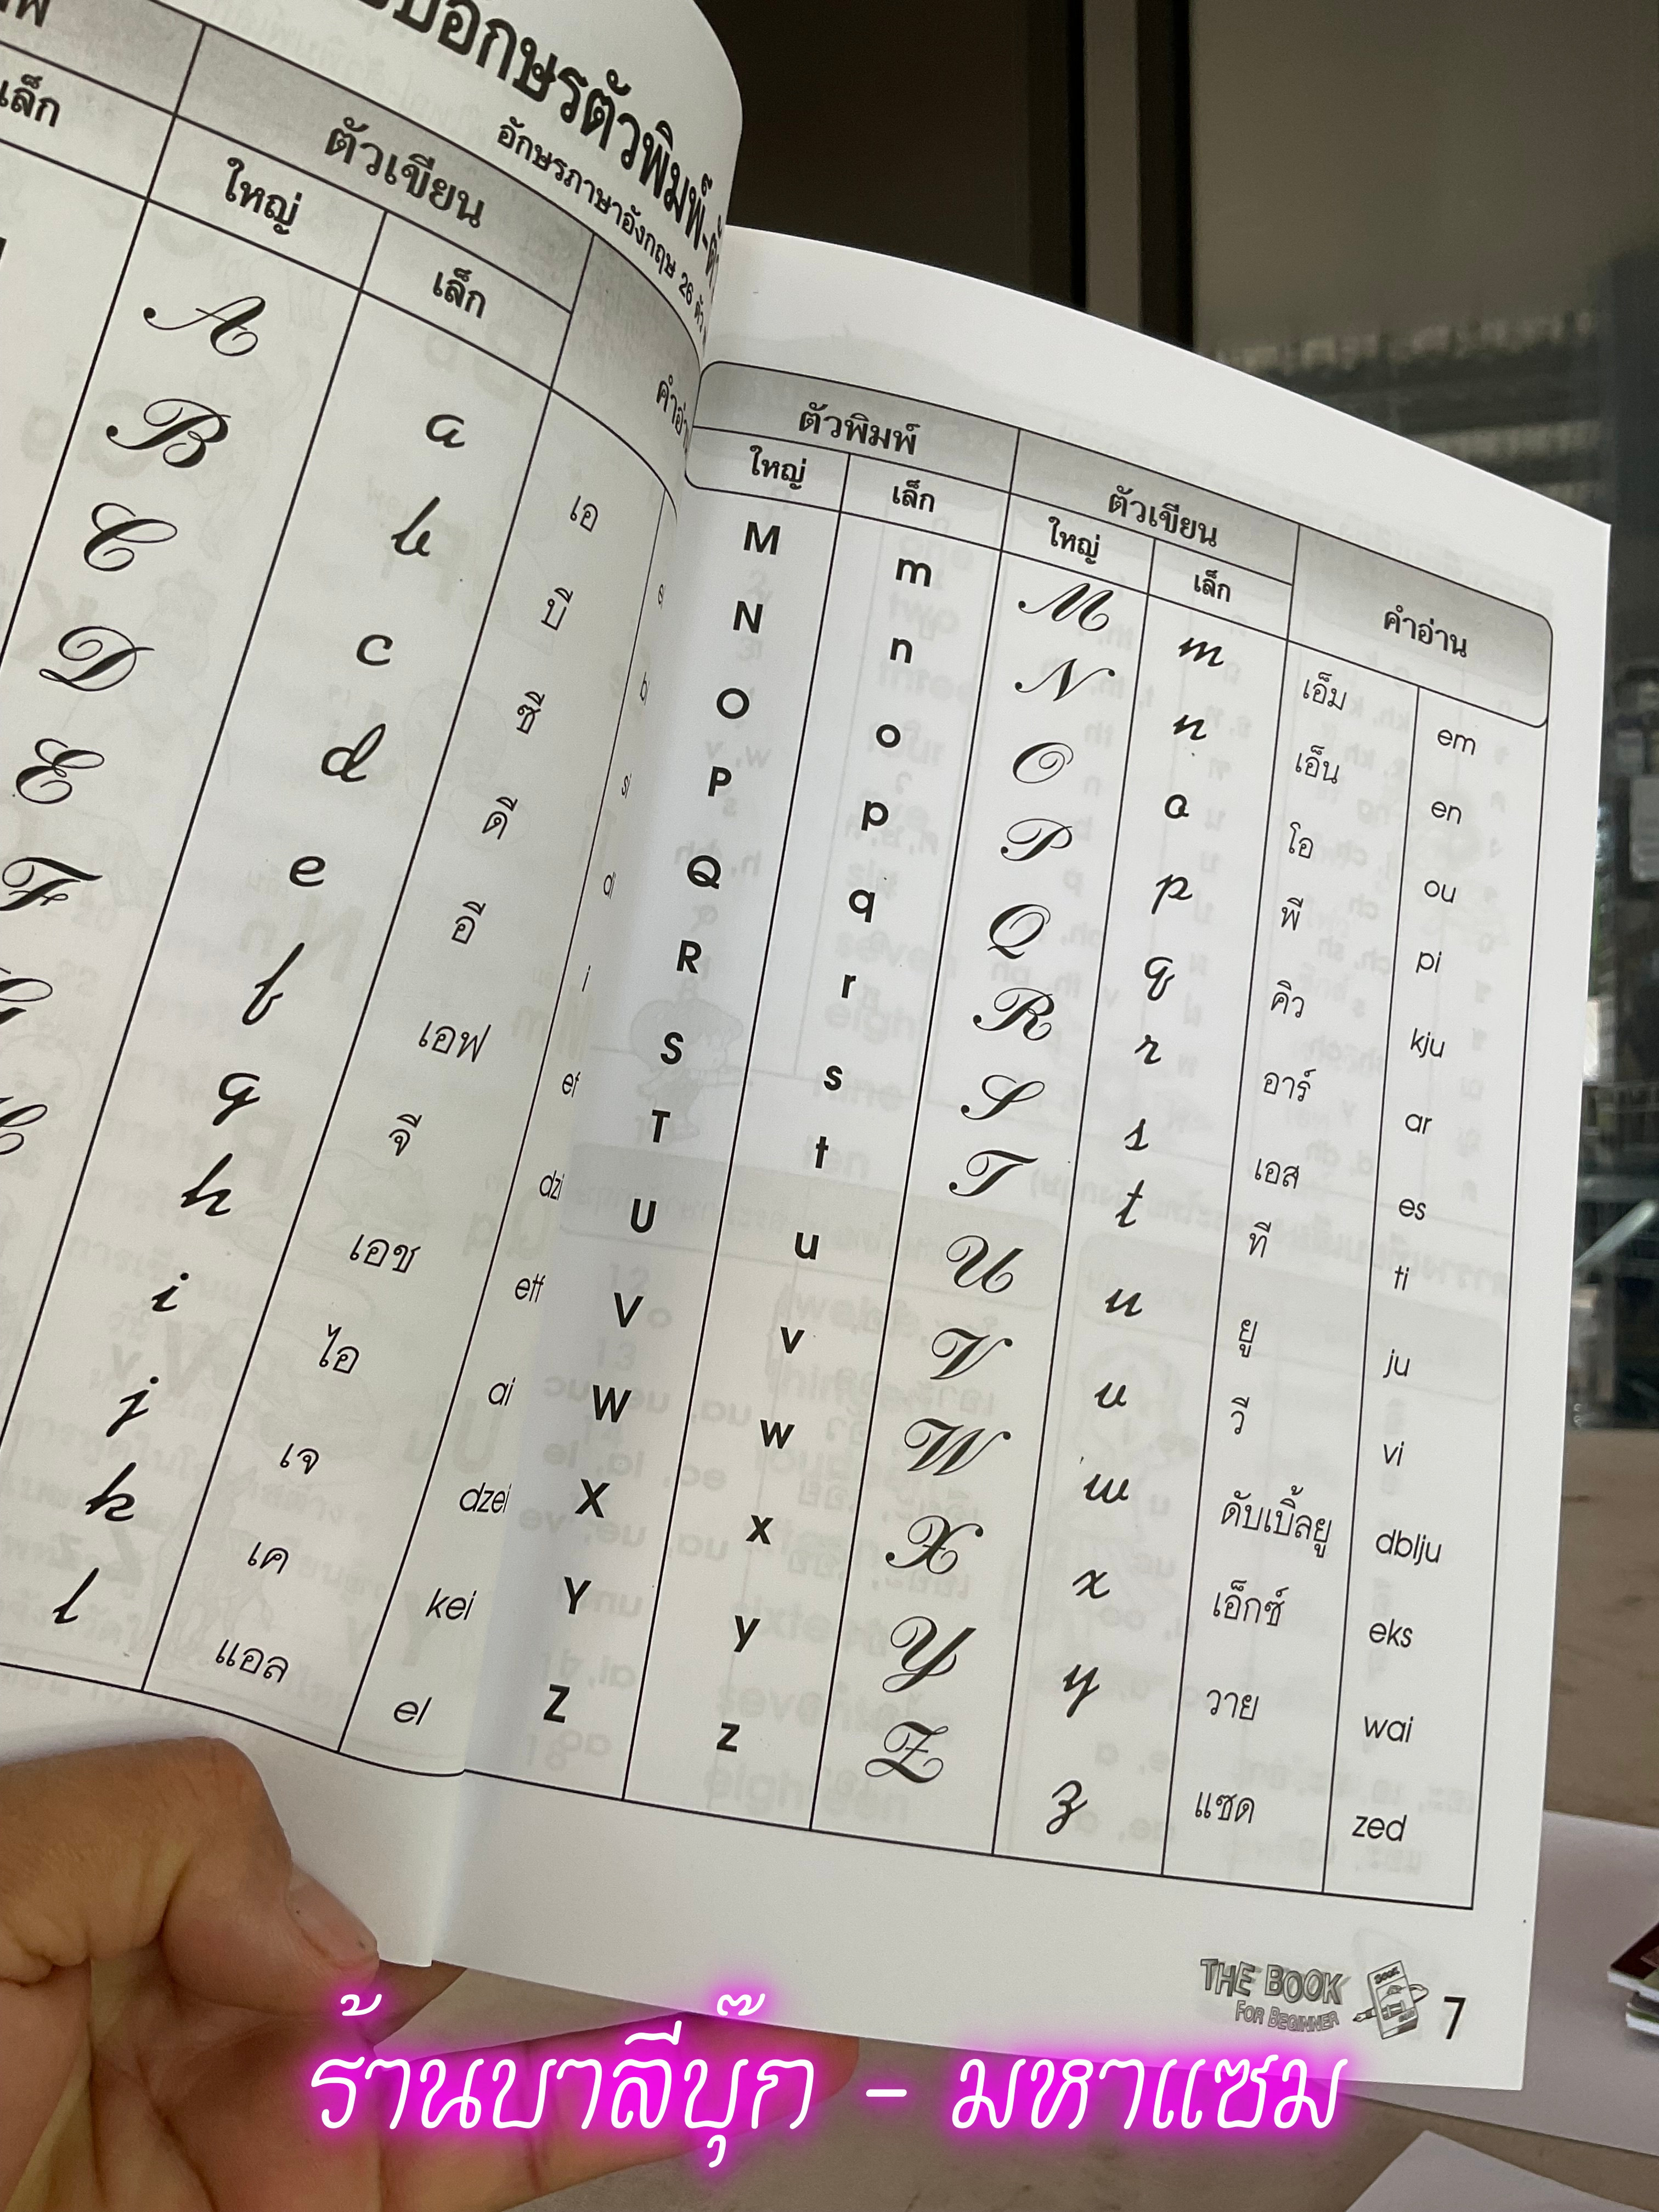 อักษรภาษาอังกฤษ 26 ตัว
เล็ก ตัวเขียน
ใหญ่ เล็ก
A a เอ
B b บี
C c ซี
D d ดี
E e อี i
F f เอฟ ef
g จี dzi
h เอช
i ไอ ai
j เจ dzei
k เค kei
l แอล el
ตัวพิมพ์ ตัวเขียน คำอ่าน
ใหญ่ เล็ก ใหญ่ เล็ก
M m M m เอ็ม em
N n N n เอ็น en
O o O o โอ ou
P p P p พี pi
Q q Q q คิว kju
R r R r อาร์ ar
S s S s เอส es
T t T t ที ti
U u U u ยู ju
V v V v วี vi
W w W w ดับเบิ้ลยู dblju
X x X x เอ็กซ์ eks
Y y Y y วาย wai
Z z Z z แซด zed
THE BOOK
FOR BEGINNER
7
ร้านบาลีบุ๊ก - มหาแซม